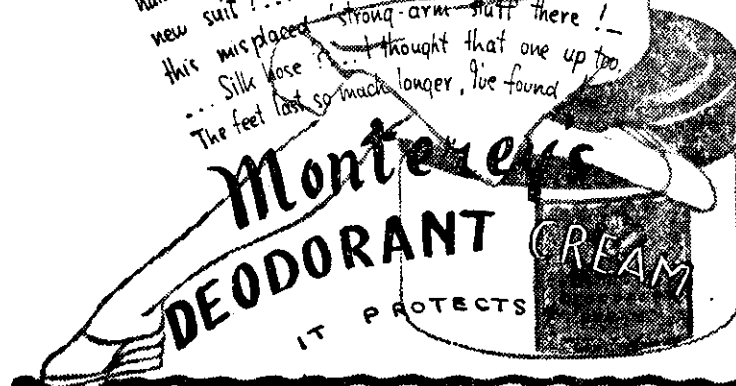 new suit ! ...
this misplaced strong-arm stuff there ! _
... Silk hose ? ... I thought that one up too,
The feet last so much longer, I've found
Monterey's
DEODORANT CREAM
IT PROTECTS